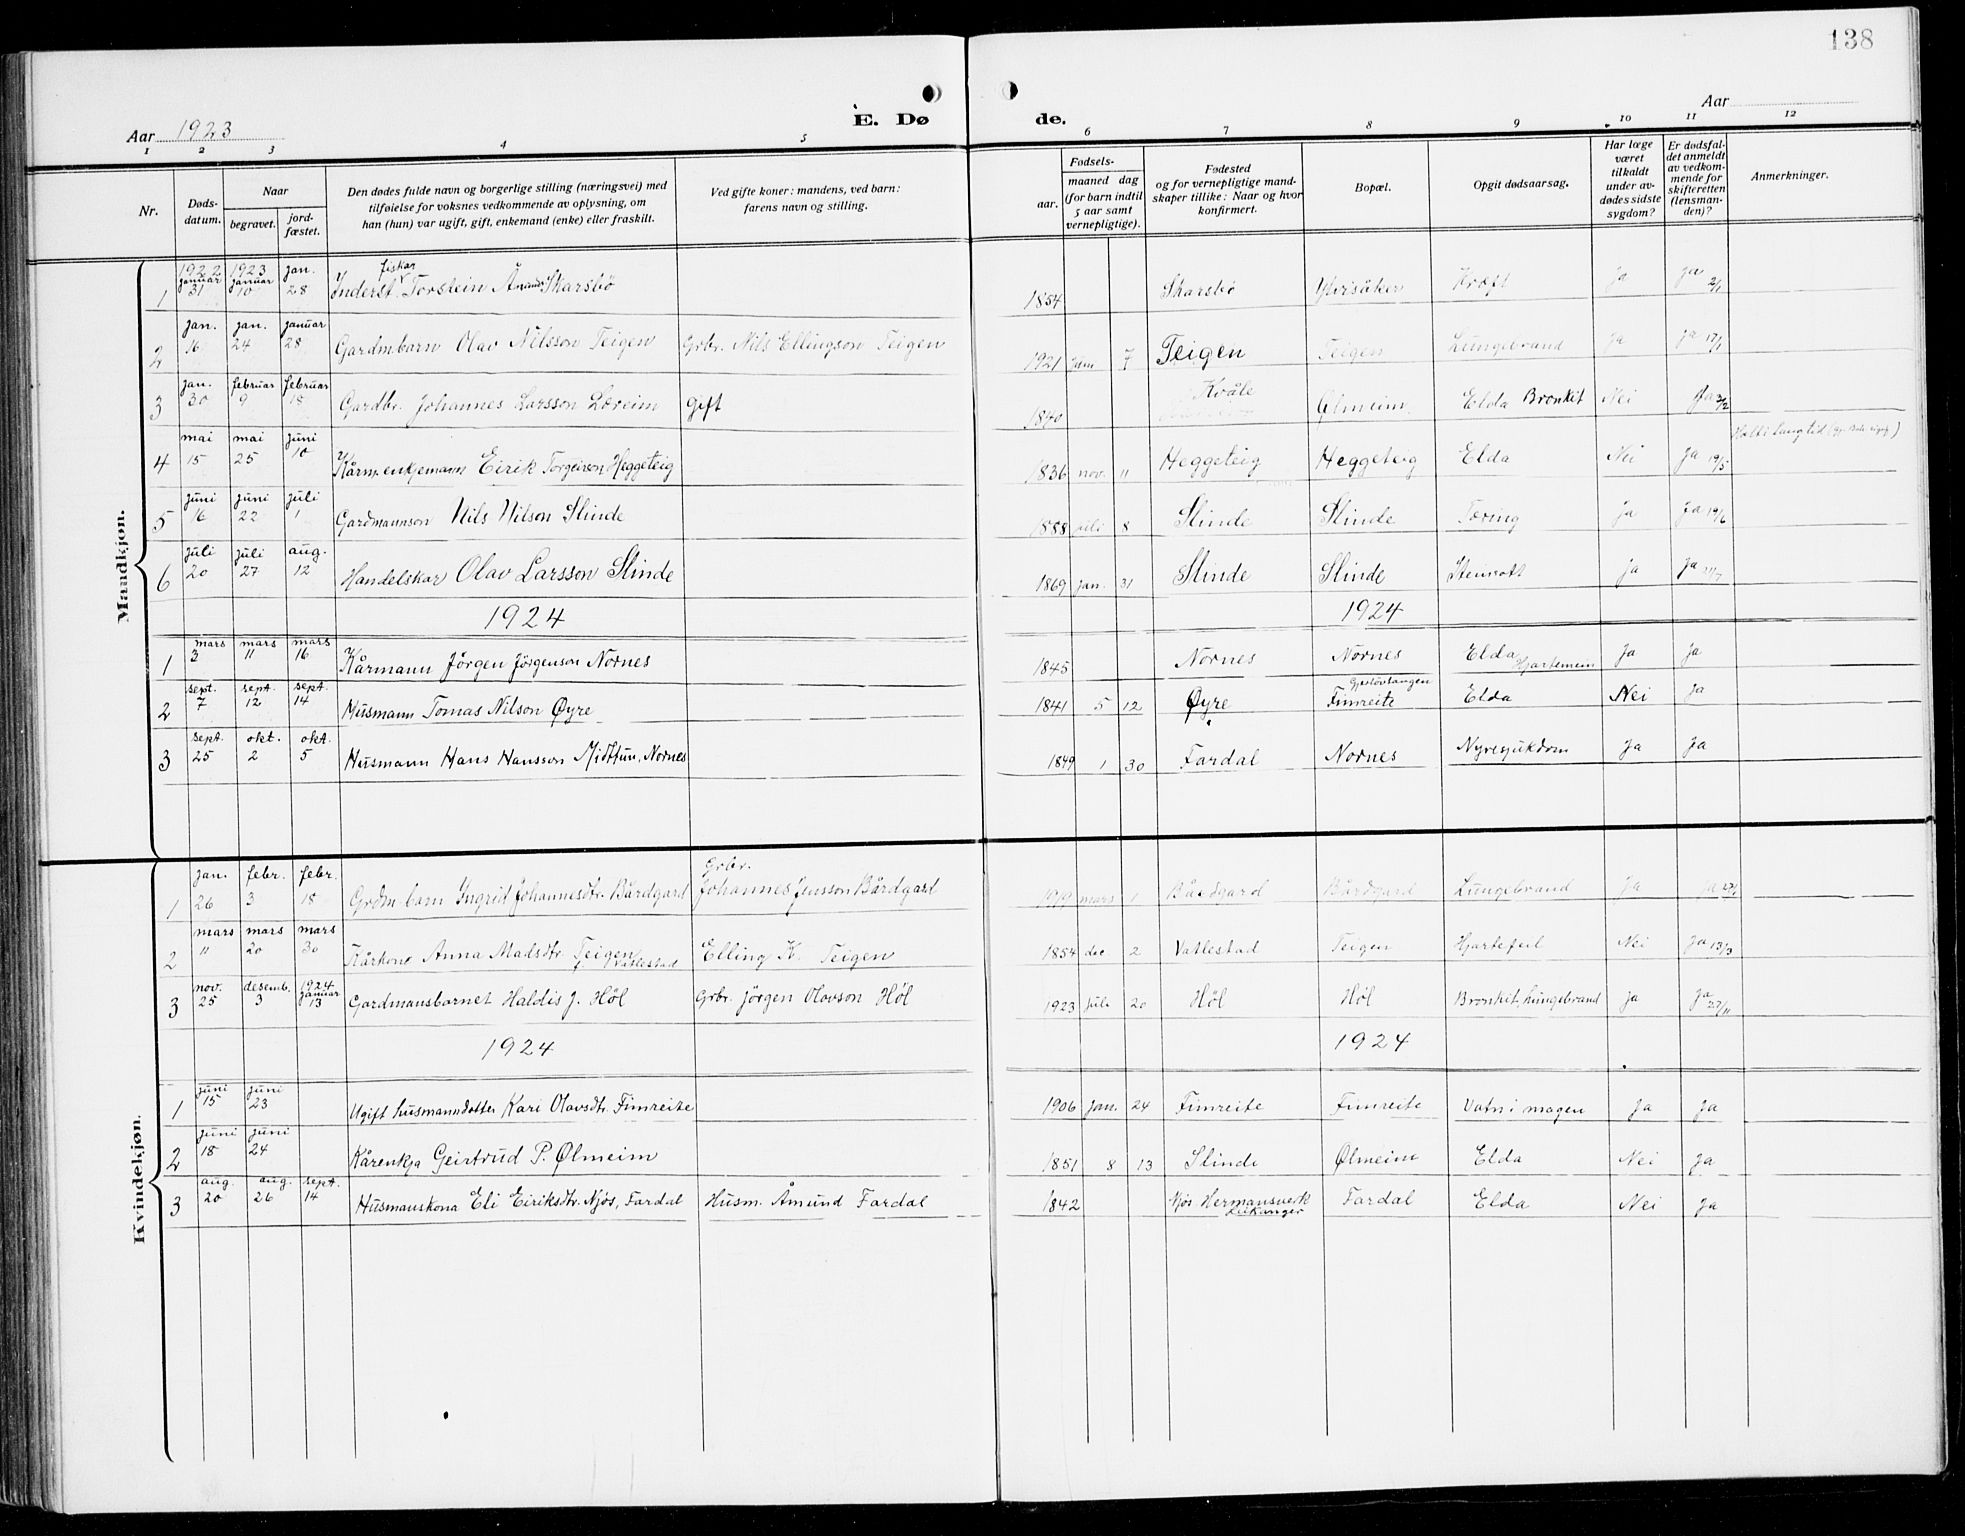 138
Aar 1923
E. Dø
de.
Aar
1 2 3 4 5 6 7 8 9 10 11 12
Nr.
Døds-
datum.
Naar
begravet.
jord-
fæstet.
Den dødes fulde navn og borgerlige stilling (næringsvei) med
tilføielse for voksnes vedkommende av oplysning, om
han (hun) var ugift, gift, enkemand (enke) eller fraskilt.
Ved gifte koner: mandens, ved barn:
farens navn og stilling.
Fødsels-
aar.
maaned dag
(for barn indtil
5 aar samt
vernepligtige).
Fødested
og for vernepligtige mand-
skaper tillike: Naar og hvor
konfirmert.
Bopæl.
Opgit dødsaarsag.
Har læge
været
tilkaldt
under av-
dødes sidste
sygdom?
Er dødsfal-
det anmeldt
av vedkom-
mende for
skifteretten
(lensman-
den)?
Anmerkninger.
Maadkjøn.
1922 1923 jan.
januar januar fiskar
1 31 10 28 Inderst Torstein Skarsbø 1854 Skarsbø Ytrisåker Kræft Ja Ja 2/1
jan. jan. januar
2 16 24 28 Gardmbarn Olav Nilsson Teigen Grbr. Nils Ellingson Teigen 1921 jan 7 Teigen Teigen Lungebrand Ja Ja 17/1
jan. februar februar
3 30 9 18 Gardbr. Johannes Larsson Loreim gift 1840 Kvåle Ølmeim Elda Bronkit Nei Ja 3/2
mai mai juni
4 15 25 10 Kårm. enkjemann Eirik Torgeirson Heggeteig 1836 nov. 11 Heggeteig Heggeteig Elda Nei Ja 19/5
juni juni juli
5 16 22 1 Gardmannson Nils Nilson Slinde 1888 juli 8 Slinde Slinde Tæring Ja Ja 19/6
juli juli aug.
6 20 27 12 Handelskar Olav Larsson Slinde 1869 jan. 31 Slinde Slinde Ja Ja
1924 1924
mars mars mars
1 3 11 16 Kårmann Jörgen Jörgenson Nornes 1845 Nornes Nornes Elda Hjartemein Ja Ja
sept. sept. sept.
2 7 12 14 Husmann Tomas Nilson Øyre 1841 5 12 Øyre Finreite Elda Nei Ja
sept. okt. okt.
3 25 2 5 Husmann Hans Hansson Midttun, Nornes 1849 1 30 Fardal Nornes Nyresjukdom Ja Ja
Kvindekjøn.
jan. febr. febr. Grbr.
1 26 3 18 Grdm.barn Ingrid Johannesdtr. Bårdgard Johannes Jensson Bårdgard 1919 mars 1 Bårdgard Bårdgard Lungebrand Ja Ja 27/1
mars mars mars
2 11 20 30 Kårkone Anna Madsdtr. Teigen Vatlestad Elling K. Teigen 1854 dec 2 Vatlestad Teigen Hjartefeil Nei Ja 13/3
nov. desemb. 1924 januar
3 25 3 13 Gardmansbarnet Haldis J. Høl Grbr. Jörgen Olavson Høl 1923 juli 20 Høl Høl Bronkit, lungebrand Ja Ja 27/11
1924 1924
juni juni
1 15 23 Ugift husmanndotter Kari Olavsdtr. Fimreite 1906 Jan. 24 Fimreite Fimreite Vatn i magen Ja Ja
juni juni
2 18 24 Kårenkja Geirtrud P. Ølmeim 1851 8 13 Slinde Ølmeim Elda Nei Ja
aug. aug. sept.
3 20 26 14 Husmanskona Eli Eiriksdtr. Njøs, Fardal Husm. Åmund Fardal 1842 Njøs Hermansverk Leikanger Fardal Elda Nei Ja